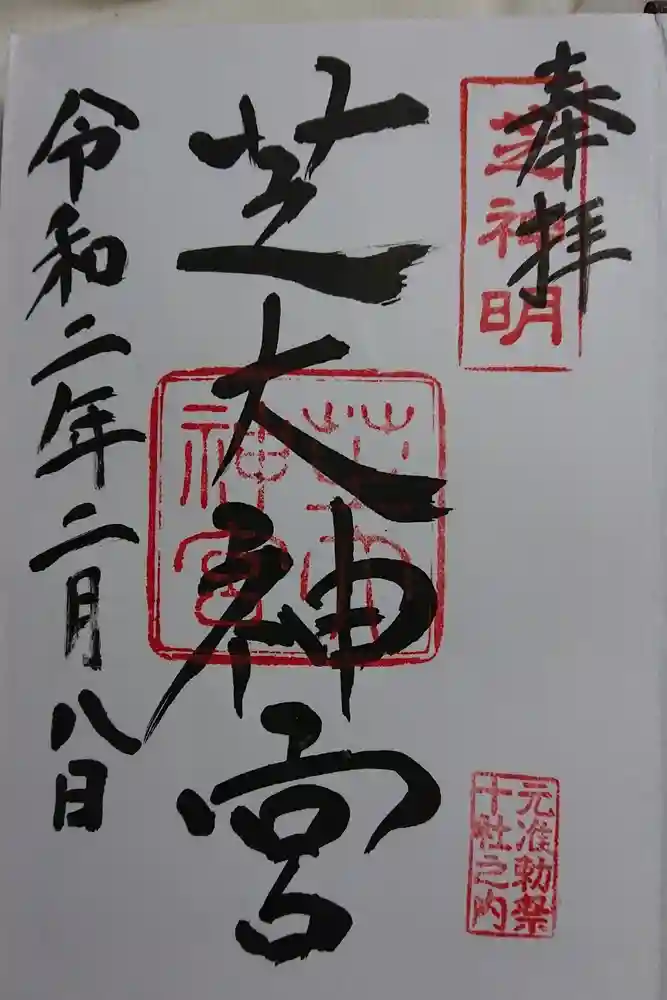 奉拝
芝神明
芝大神宮
芝大神宮
令和二年二月八日
元准勅祭
十社之内